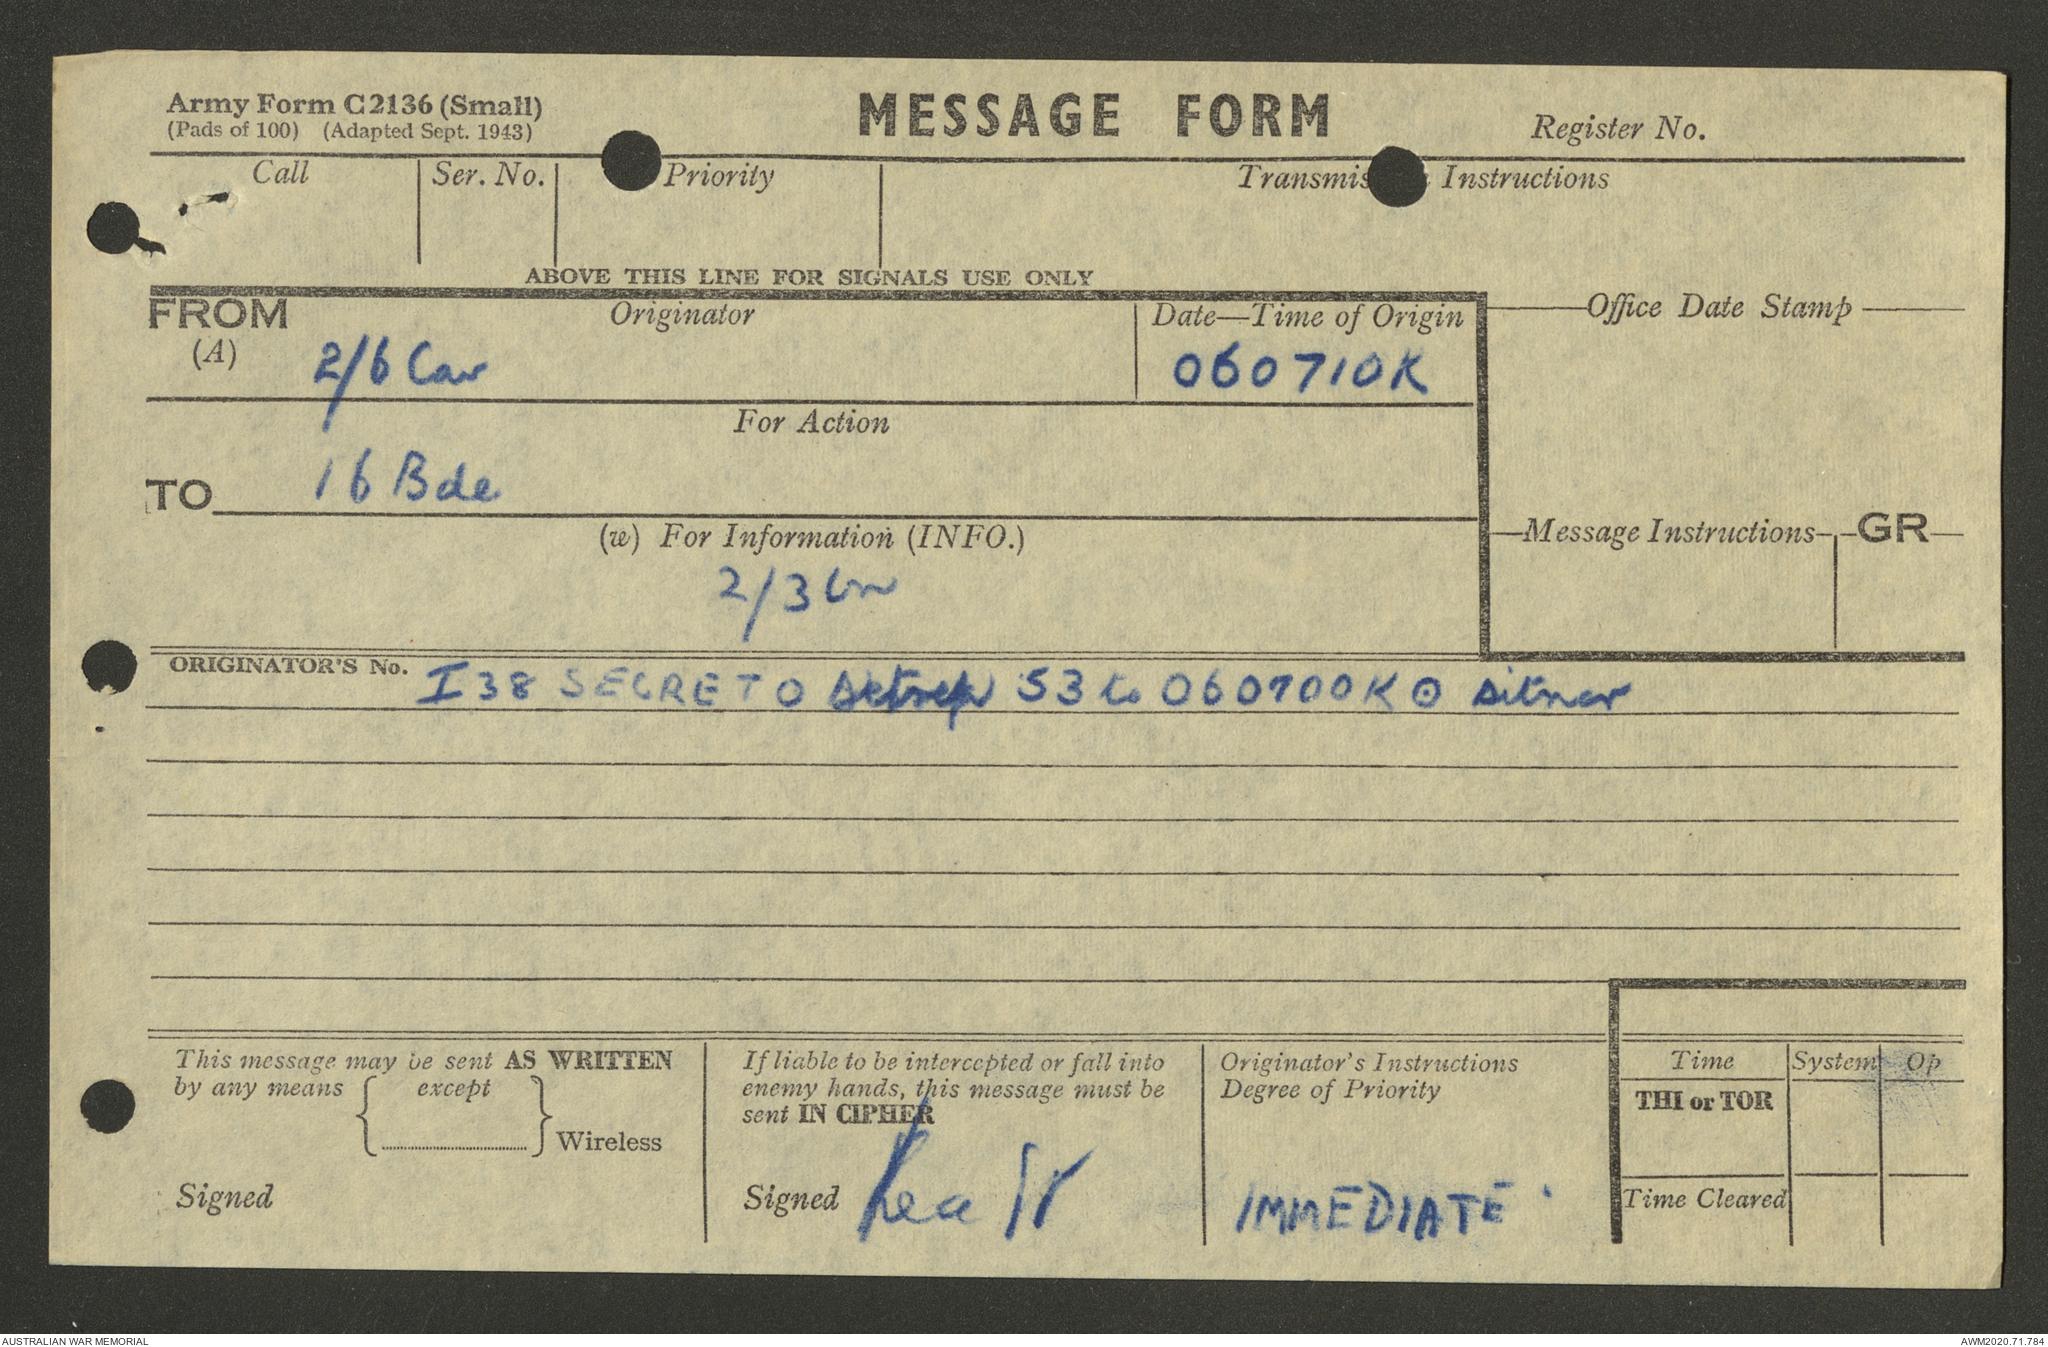 Army Form C2136 (Small)
(Pads of 100) (Adapted Sept. 1943)
MESSAGE FORM
Register No.
Call
Ser. No.
Priority
Transmis Instructions
ABOVE THIS LINE FOR SIGNALS USE ONLY
FROM
(A)
Originator
2/6 Cav
Date—Time of Origin
060710K
Office Date Stamp
For Action
TO
16 Bde
(w) For Information (INFO.)
2/3
Message Instructions
GR
ORIGINATOR'S No.
I38 SECRET O Sitrep 53 to 060700K O sitnor
This message may be sent AS WRITTEN
by any means { except } Wireless
Signed
If liable to be intercepted or fall into
enemy hands, this message must be
sent IN CIPHER
Signed
Originator's Instructions
Degree of Priority
IMMEDIATE
Time
System
Op
THI or TOR
Time Cleared
AUSTRALIAN WAR MEMORIAL
AWM2020.71.784